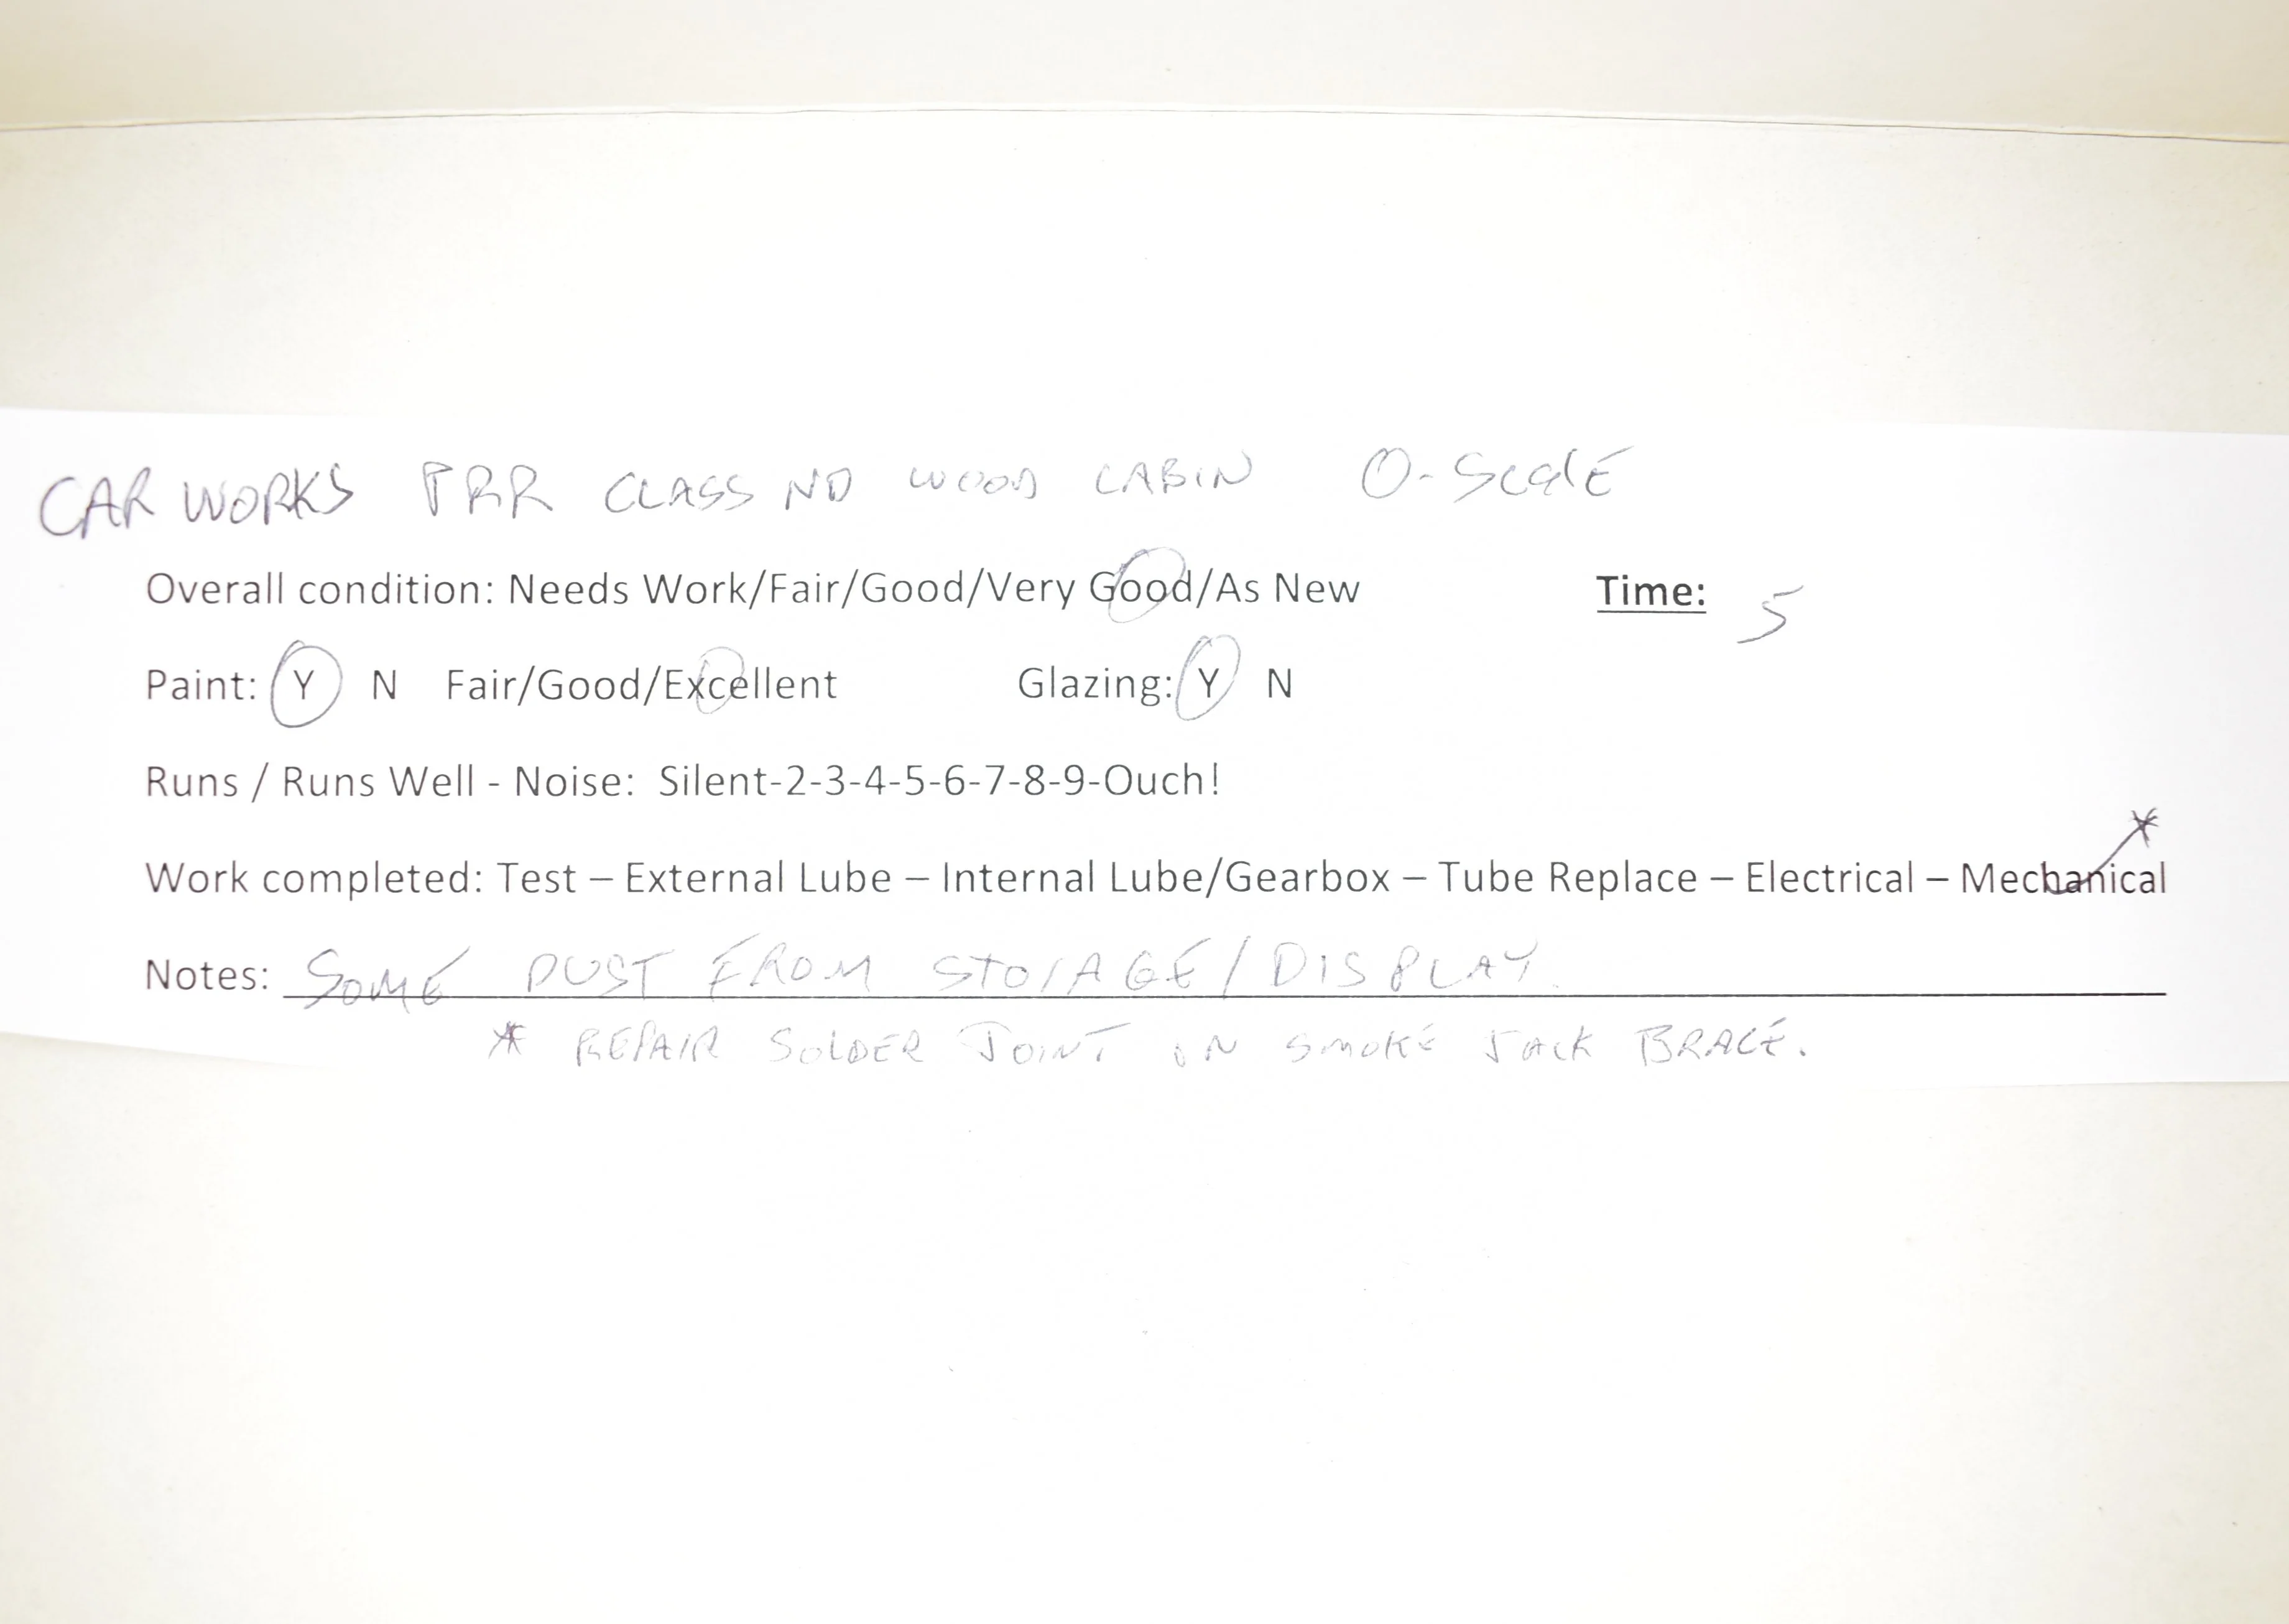 CAR WORKS PRR CLASS ND WOOD CABIN O-ScalE
Overall condition: Needs Work/Fair/Good/Very Good/As New Time: 5
Paint: Y N Fair/Good/Excellent Glazing: Y N
Runs / Runs Well - Noise: Silent-2-3-4-5-6-7-8-9-Ouch!
*
Work completed: Test – External Lube – Internal Lube/Gearbox – Tube Replace – Electrical – Mechanical
Notes: SOME DUST FROM STORAGE/DISPLAY.
* REPAIR SOLDER JOINT ON SMOKE JACK BRACE.